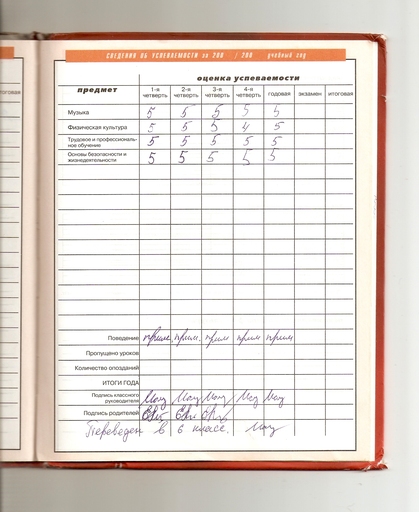 СВЕДЕНИЯ ОБ УСПЕВАЕМОСТИ за 200 / 200 учебный год
оценка успеваемости
предмет 1-я четверть 2-я четверть 3-я четверть 4-я четверть годовая экзамен итоговая
Музыка 5 5 5 5 5
Физическая культура 5 5 5 4 5
Трудовое и профессиональ-
ное обучение 5 5 5 5 5
Основы безопасности и
жизнедеятельности 5 5 5 5 5
Поведение прим. прим. прим прим прим
Пропущено уроков
Количество опозданий
ИТОГИ ГОДА
Подпись классного
руководителя
Подпись родителей
Переведен в 6 класс.